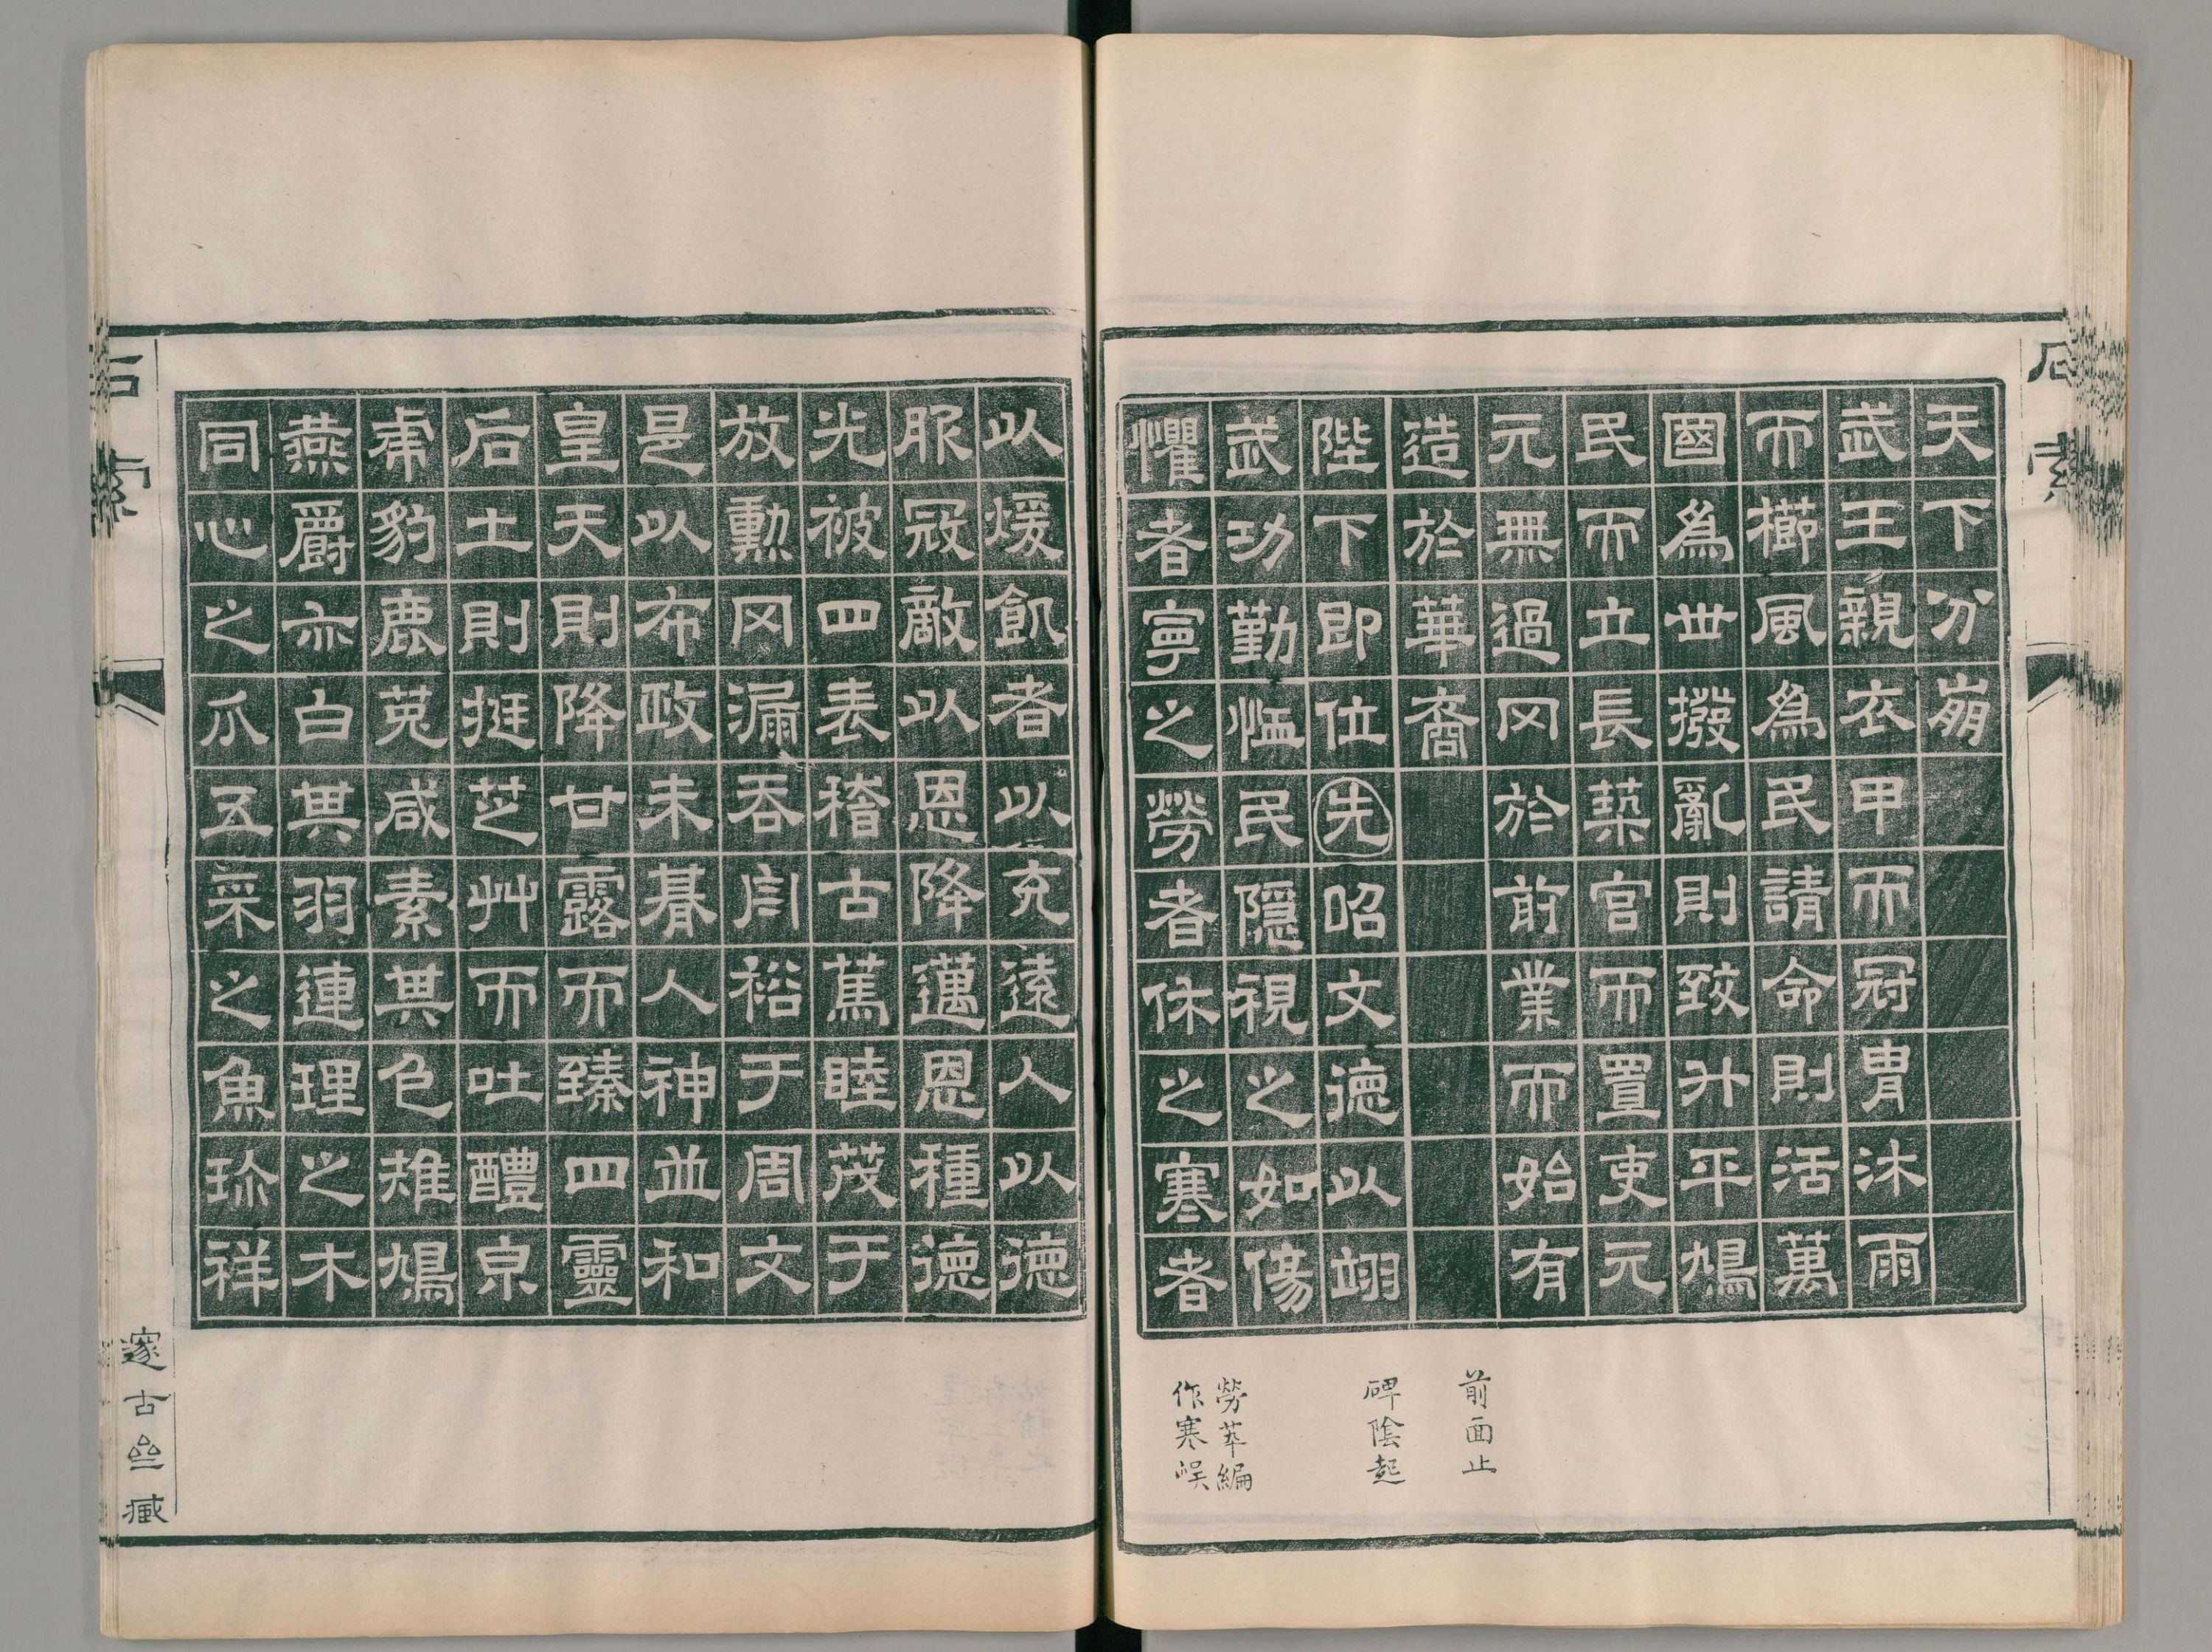 石索
天下分崩
武王親衣甲而冠冑沐雨
而櫛風爲民請命則活萬
國爲世撥亂則致升平鳩
民而立長築宮而置吏元
元無過罔於前業而始有
造於華裔
陛下即位先昭文德以翊
武功勤恤民隱視之如傷
懼者寧之勞者休之寒者
前面止
碑陰起
勞萃編
作寒誤
以煖飢者以充遠人以德
服寇敵以恩降邁恩種德
光被四表稽古篤睦茂于
放勳罔漏吞周裕于周文
是以布政未朞人神並和
皇天則降甘露而臻四靈
后土則挺芝艸而吐醴泉
虎豹鹿菟咸素其色雉鳩
燕爵亦白其羽連理之木
同心之瓜五采之魚珍祥
石索
邃古亝藏